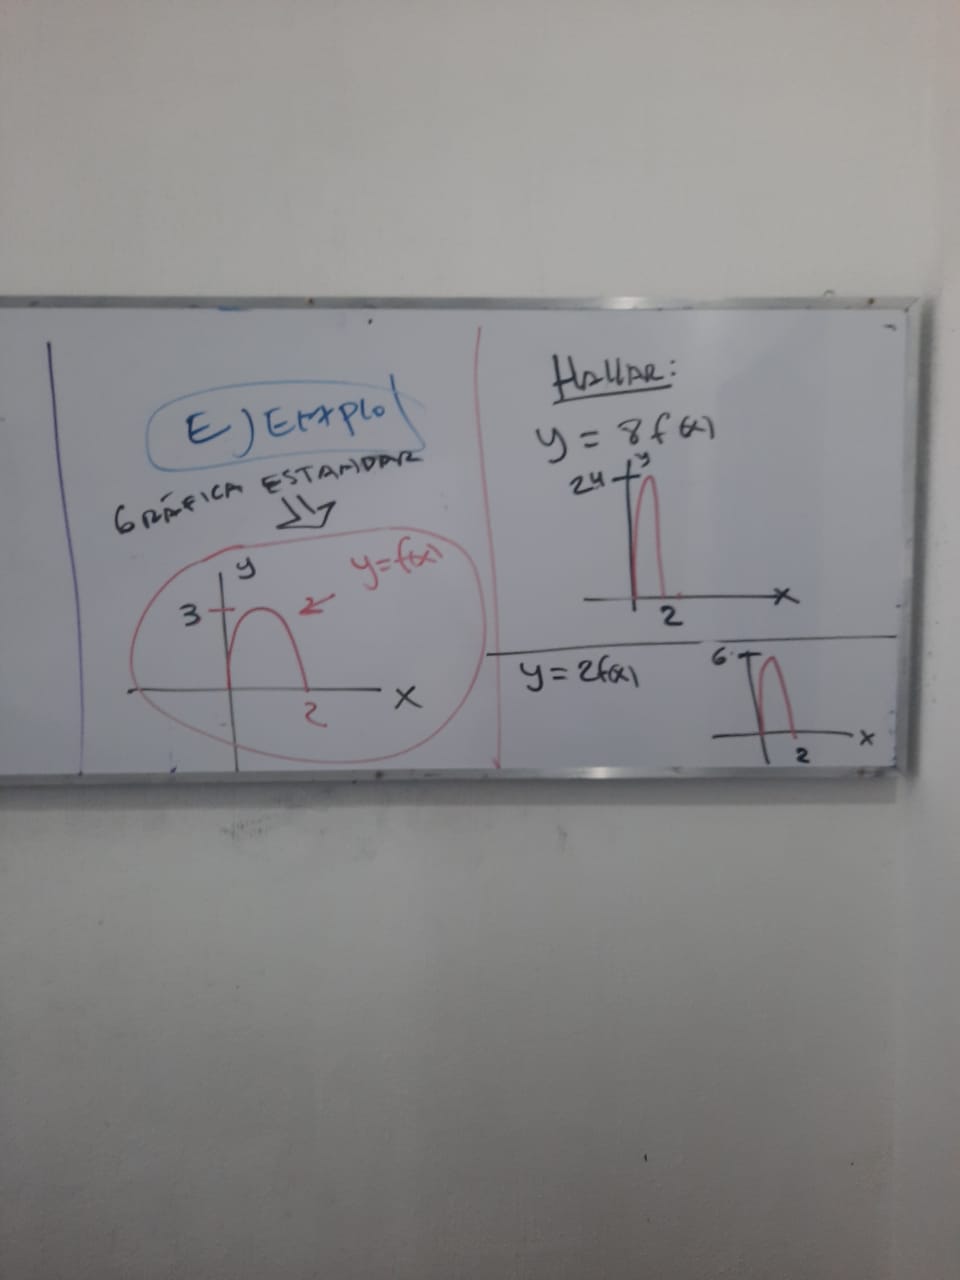 EJEMPLO
GRÁFICA ESTANDAR
y
y=f(x)
3
2
x
HALLAR:
y = 8f(x)
y
24
x
2
y=2f(x)
6
x
2